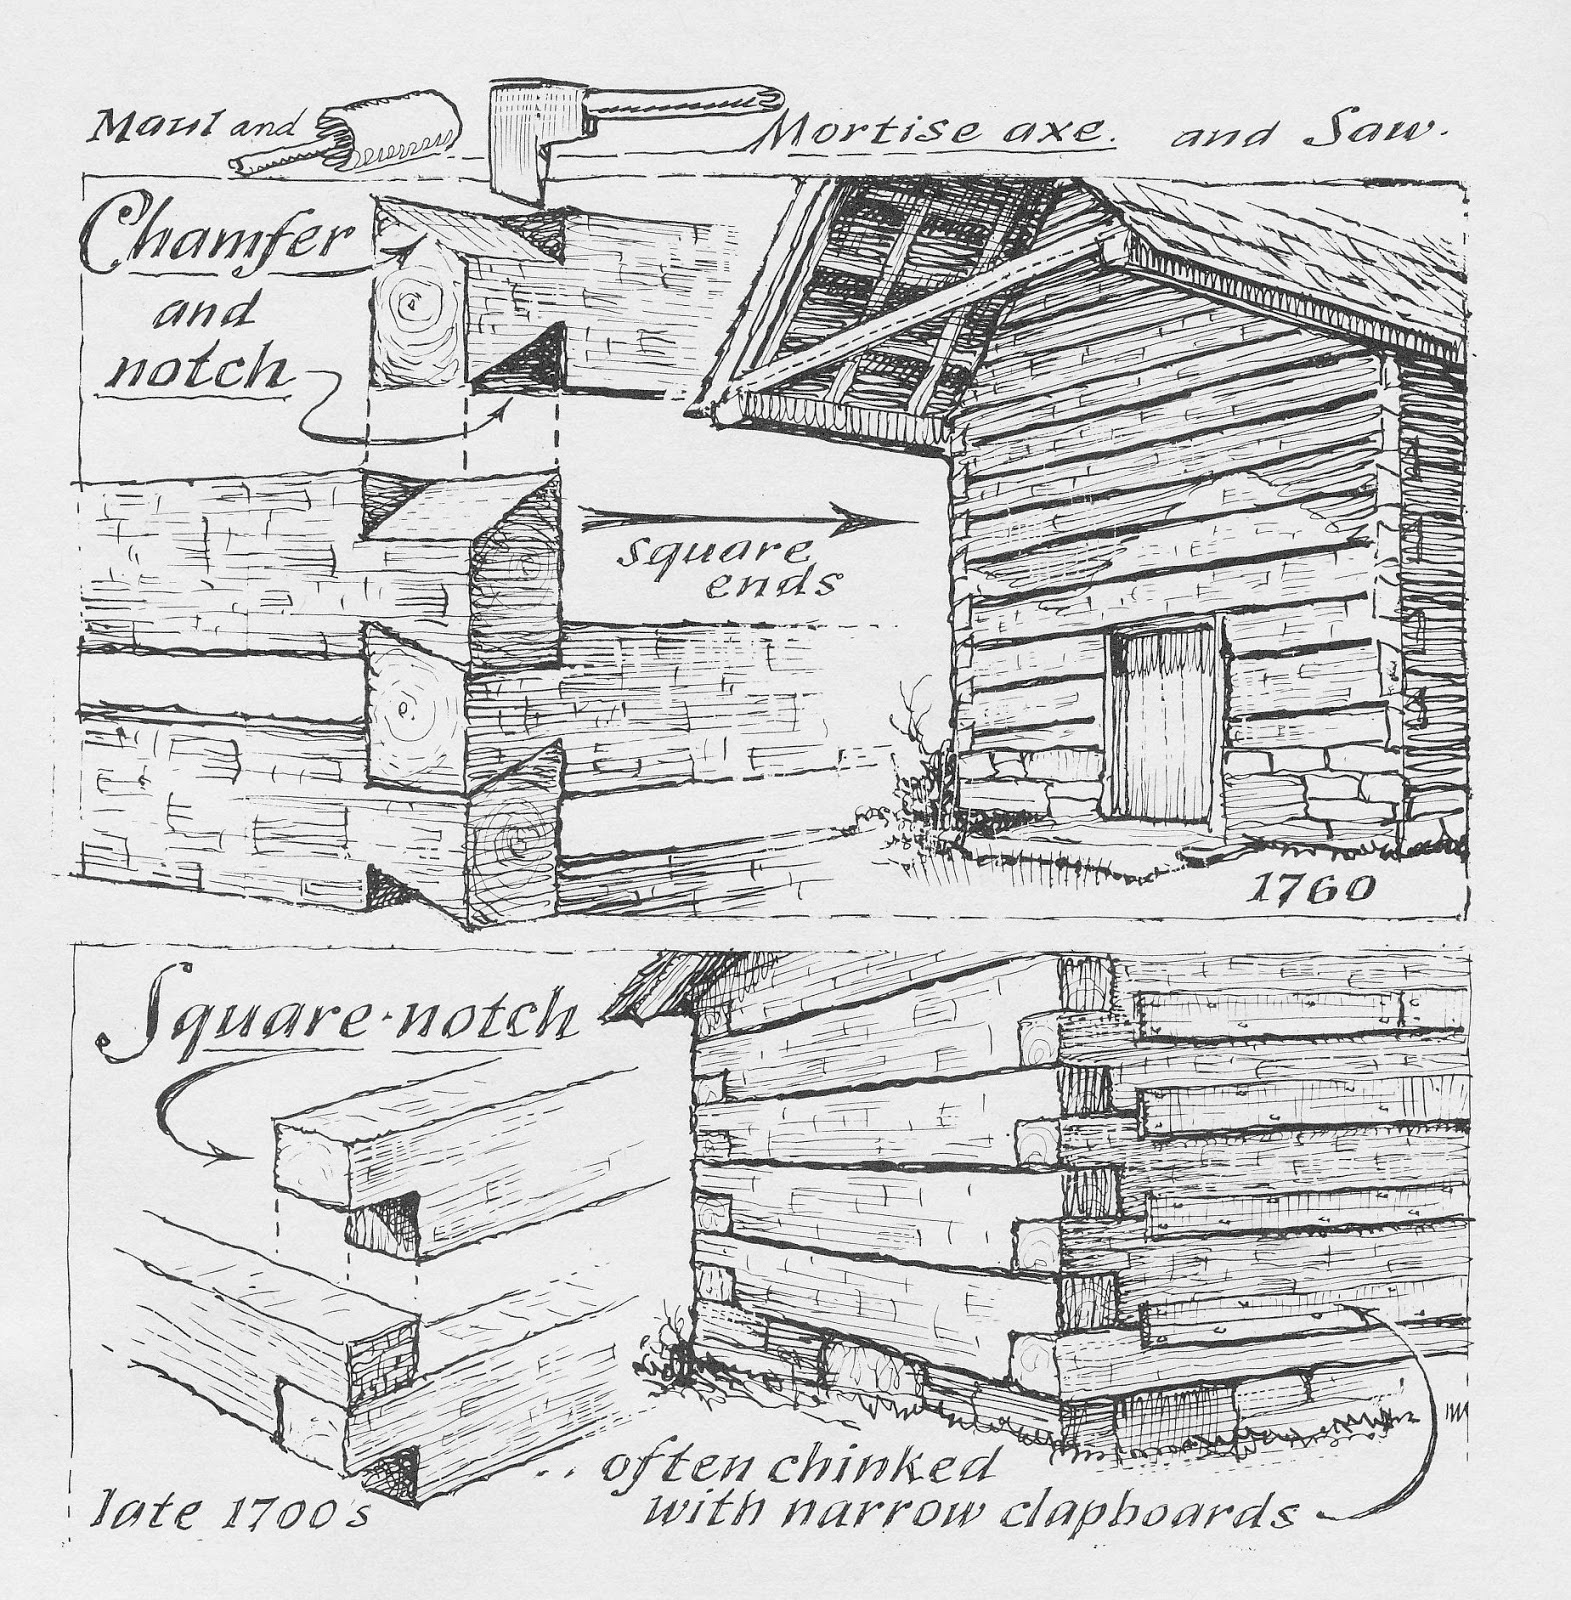 Maul and Mortise axe. and Saw.
Chamfer
and
notch
square
ends
1760
Square-notch
late 1700's
.. often chinked
with narrow clapboards